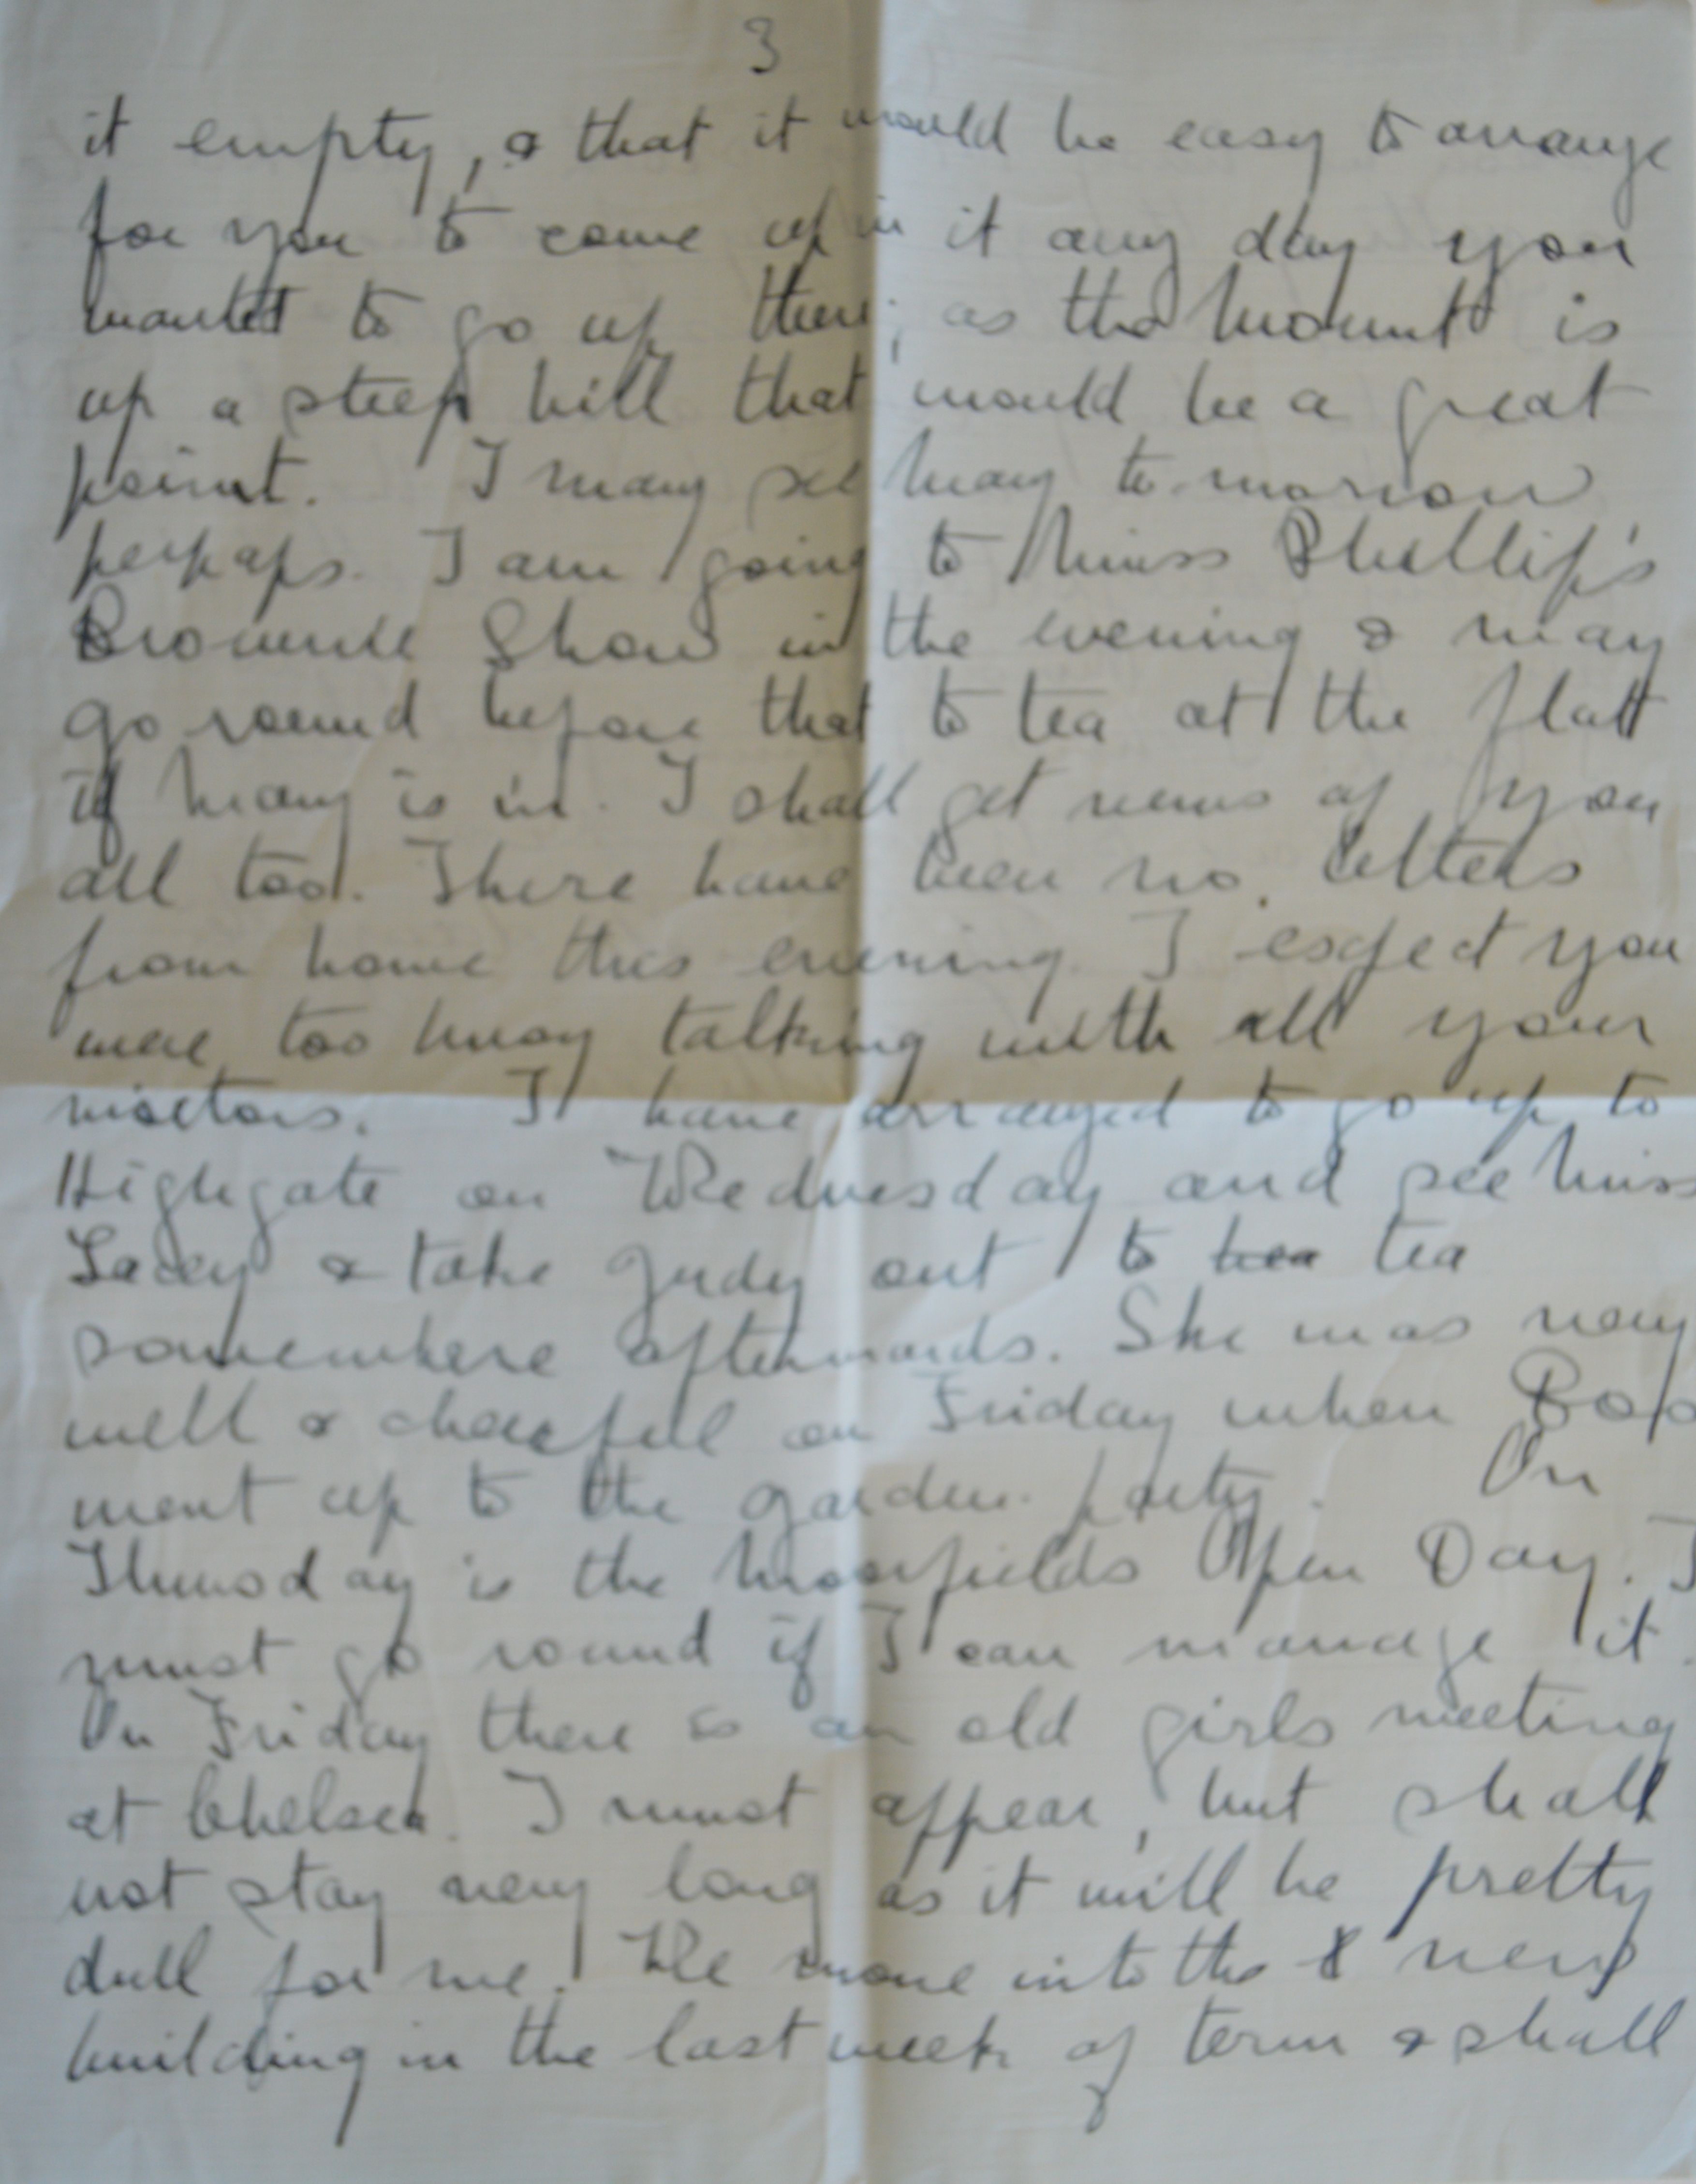 3
it empty, & that it would be easy to arrange
for you to come up in it any day you
wanted to go up there; as the Mount is
up a steep hill that would be a great
point. I may see Mary to-morrow
perhaps. I am going to Miss Phillip's
Brownie Show in the evening & may
go round before that to tea at the flatt
if Mary is in. I shall get news of you
all too. There have been no letters
from home this evening. I expect you
were too busy talking with all your
visitors. I have arranged to go up to
Highgate on Wednesday and see Miss
Lacey & take Judy out to tea tea
somewhere afterwards. She was very
well & cheerful on Friday when Bop
went up to the garden party. On
Thursday is the Moorfields Open Day. I
must go round if I can manage it.
On Friday there is an old girls meeting
at Chelsea. I must appear, but shall
not stay very long as it will be pretty
dull for me. We move into the new
building in the last week of term & shall